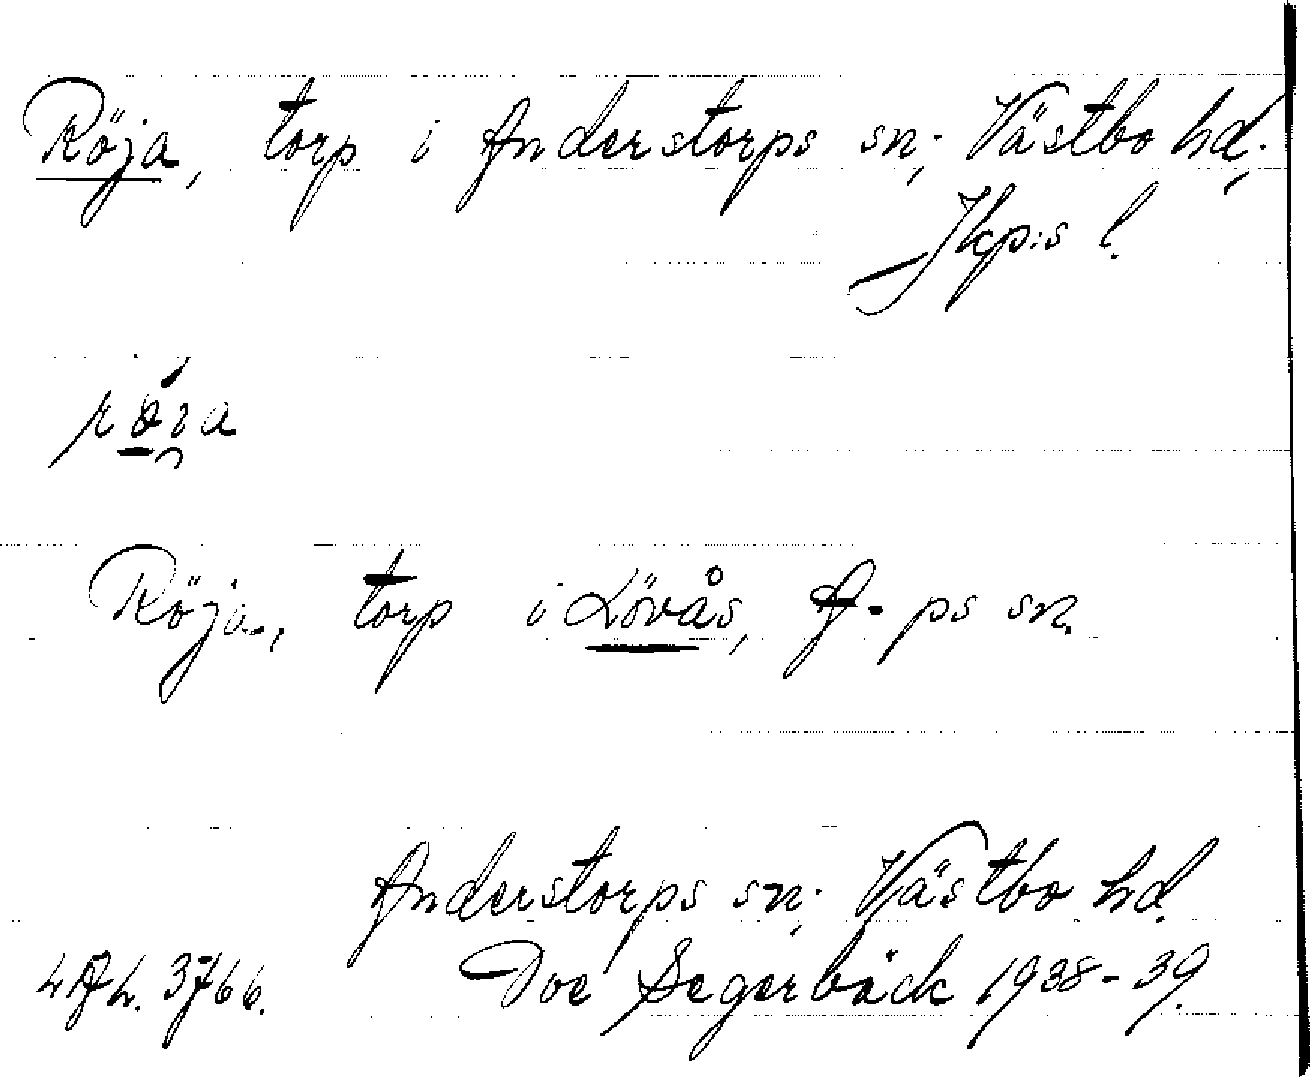 Röja, torp i Anderstorps sn; Västbo hd.
Jkp:s l.
Röja, torp i Lövås, A-ps sn.
Anderstorps sn; Västbo hd.
h. 3766. Segerbäck 1938-39.